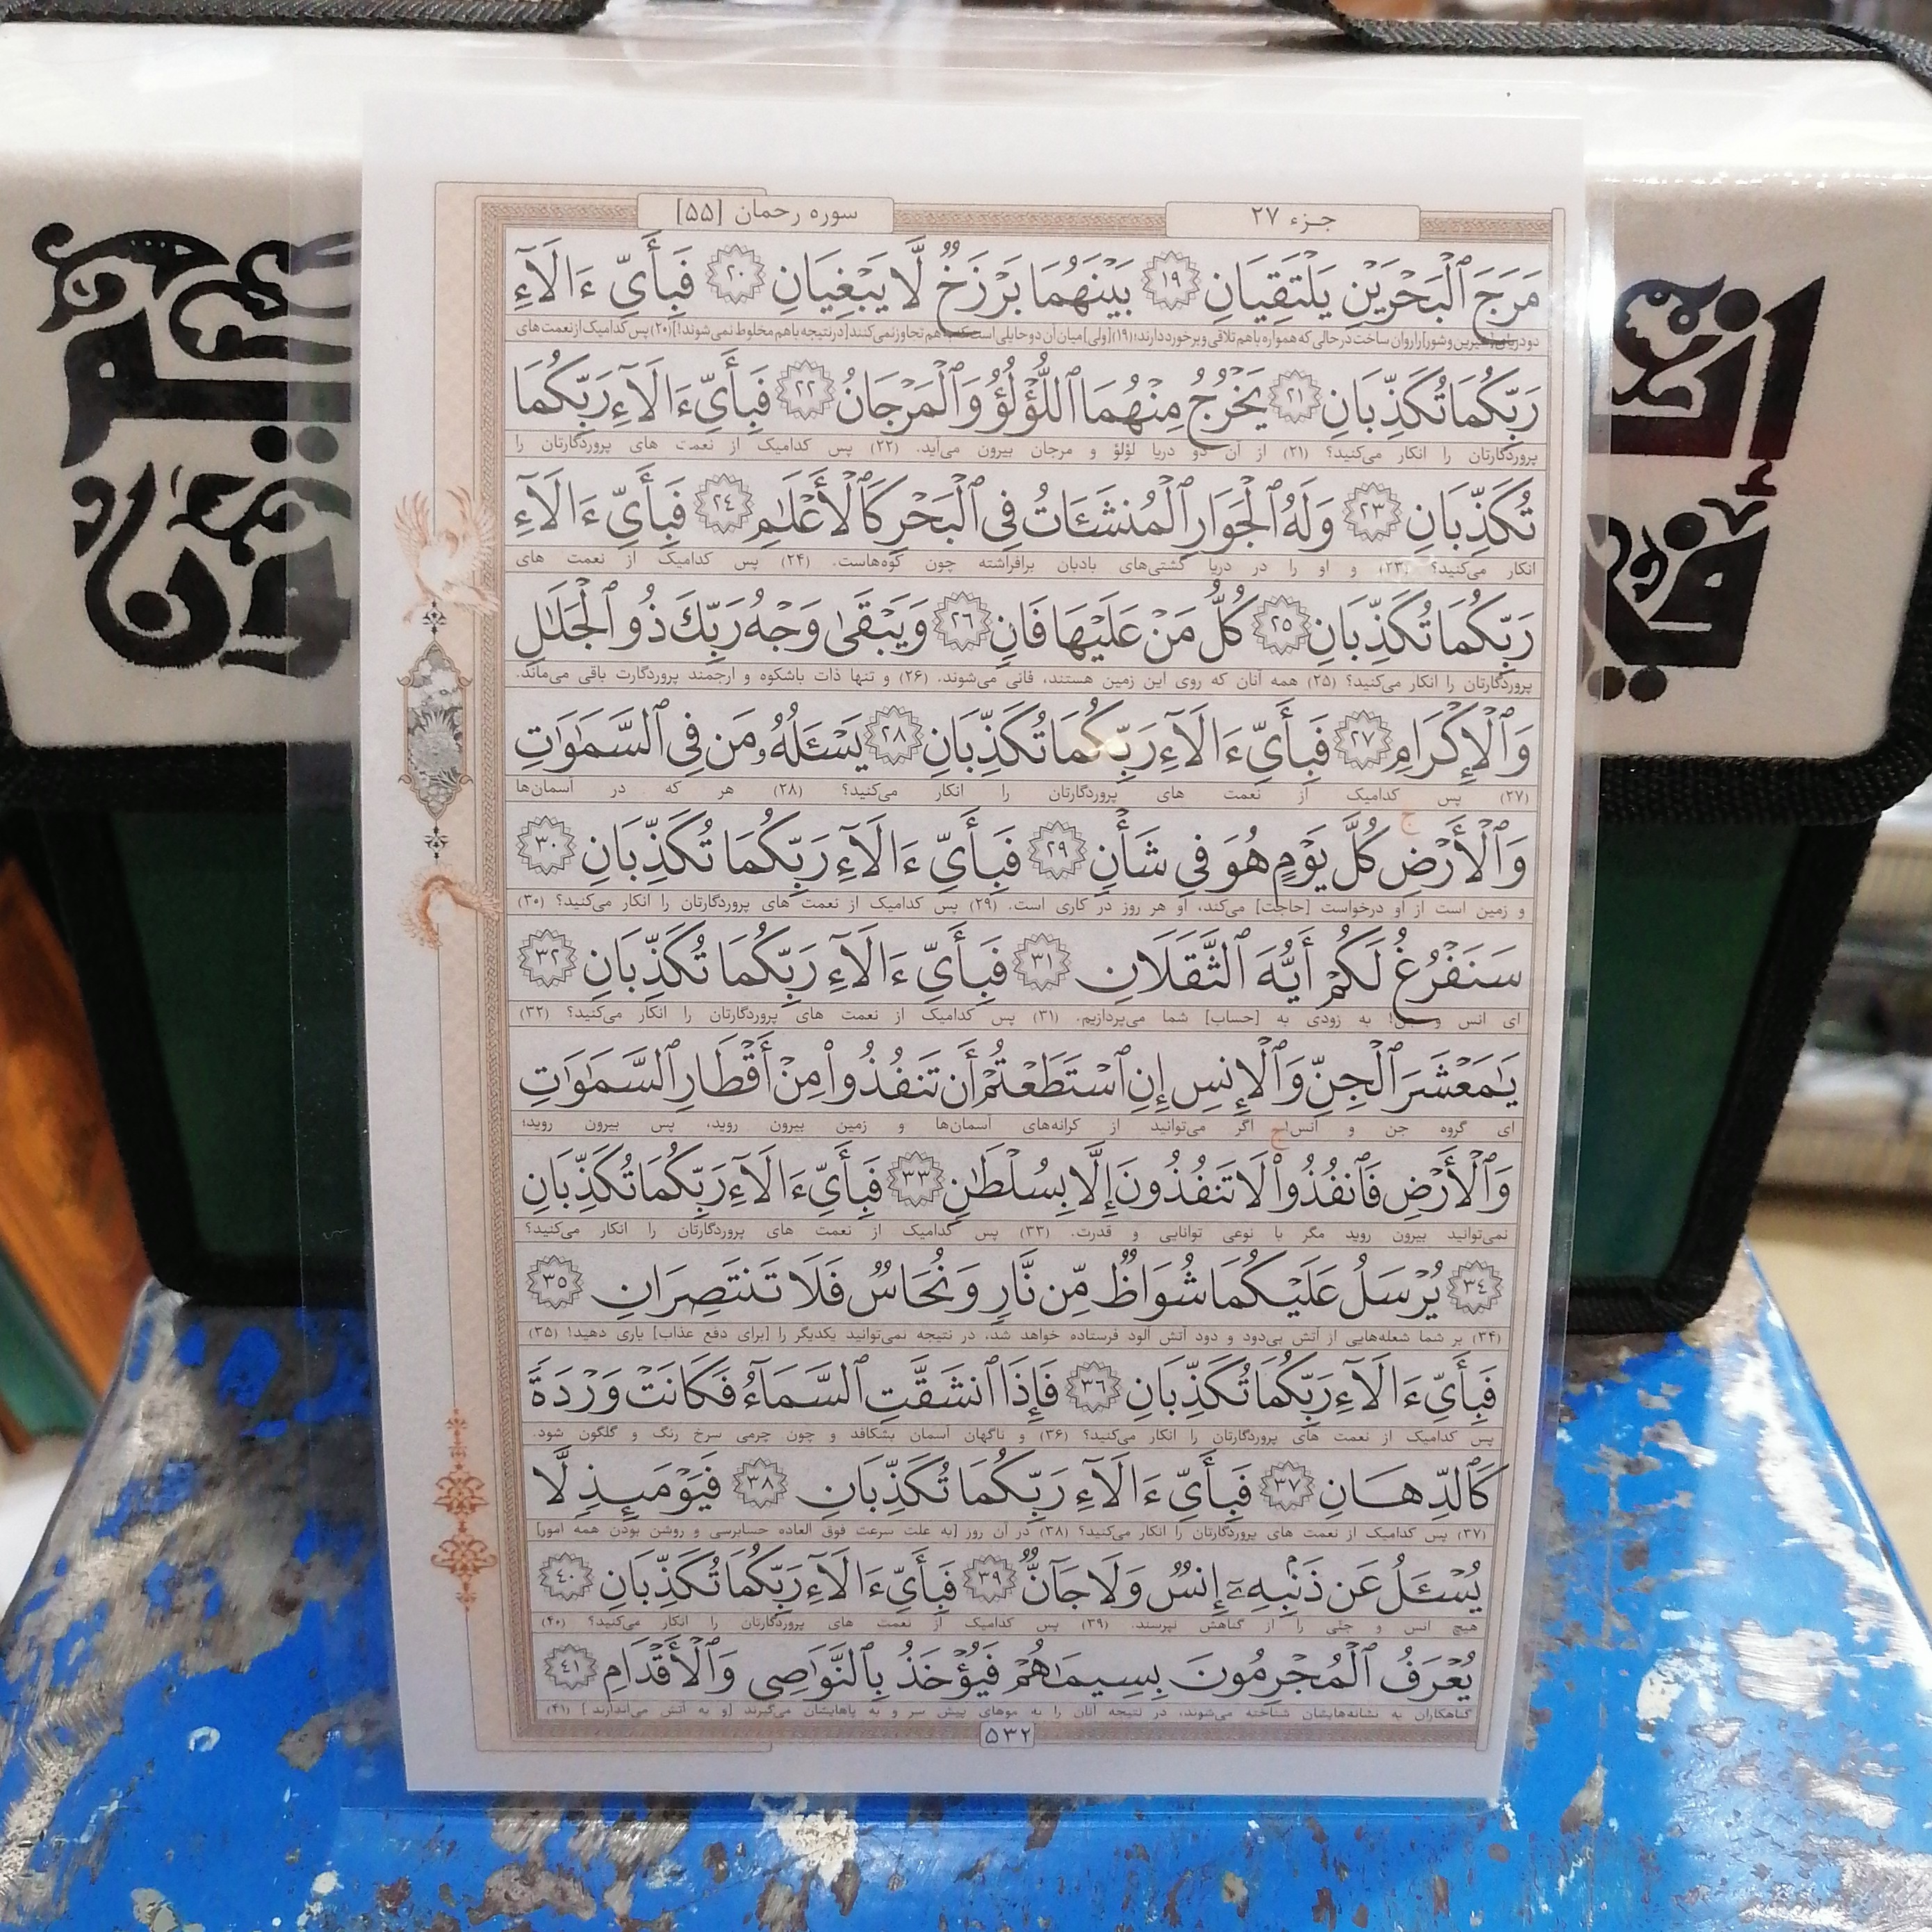 جزء ۲۷
سوره رحمان [۵۵]
مَرَجَ ٱلْبَحْرَيْنِ يَلْتَقِيَانِ ١٩ بَيْنَهُمَا بَرْزَخٌ لَّا يَبْغِيَانِ ٢٠ فَبِأَىِّ ءَالَآءِ
دو دریای [شیرین و شور] را روان ساخت در حالی که همواره باهم تلاقی و برخورد دارند؛ (۱۹) [ولی] میان آن دو حایلی است که به هم تجاوز نمی‌کنند [در نتیجه باهم مخلوط نمی‌شوند!] (۲۰) پس کدامیک از نعمت های
رَبِّكُمَا تُكَذِّبَانِ ٢١ يَخْرُجُ مِنْهُمَا ٱللُّؤْلُؤُ وَٱلْمَرْجَانُ ٢٢ فَبِأَىِّ ءَالَآءِ رَبِّكُمَا
پروردگارتان را انکار می‌کنید؟ (۲۱) از آن دو دریا لؤلؤ و مرجان بیرون می‌آید. (۲۲) پس کدامیک از نعمت های پروردگارتان را
تُكَذِّبَانِ ٢٣ وَلَهُ ٱلْجَوَارِ ٱلْمُنشَـَٔاتُ فِى ٱلْبَحْرِ كَٱلْأَعْلَـٰمِ ٢٤ فَبِأَىِّ ءَالَآءِ
انکار می‌کنید؟ (۲۳) و او را در دریا کشتی‌های بادبان برافراشته چون کوه‌هاست. (۲۴) پس کدامیک از نعمت های
رَبِّكُمَا تُكَذِّبَانِ ٢٥ كُلُّ مَنْ عَلَيْهَا فَانٍ ٢٦ وَيَبْقَىٰ وَجْهُ رَبِّكَ ذُو ٱلْجَلَـٰلِ
پروردگارتان را انکار می‌کنید؟ (۲۵) همه آنان که روی این زمین هستند، فانی می‌شوند. (۲۶) و تنها ذات باشکوه و ارجمند پروردگارت باقی می‌ماند.
وَٱلْإِكْرَامِ ٢٧ فَبِأَىِّ ءَالَآءِ رَبِّكُمَا تُكَذِّبَانِ ٢٨ يَسْـَٔلُهُۥ مَن فِى ٱلسَّمَـٰوَٰتِ
(۲۷) پس کدامیک از نعمت های پروردگارتان را انکار می‌کنید؟ (۲۸) هر که در آسمان‌ها
وَٱلْأَرْضِ ۚ كُلَّ يَوْمٍ هُوَ فِى شَأْنٍ ٢٩ فَبِأَىِّ ءَالَآءِ رَبِّكُمَا تُكَذِّبَانِ ٣٠
و زمین است از او درخواست [حاجت] می‌کند، او هر روز در کاری است. (۲۹) پس کدامیک از نعمت های پروردگارتان را انکار می‌کنید؟ (۳۰)
سَنَفْرُغُ لَكُمْ أَيُّهَ ٱلثَّقَلَانِ ٣١ فَبِأَىِّ ءَالَآءِ رَبِّكُمَا تُكَذِّبَانِ ٣٢
ای انس و جن! به زودی به [حساب] شما می‌پردازیم. (۳۱) پس کدامیک از نعمت های پروردگارتان را انکار می‌کنید؟ (۳۲)
يَـٰمَعْشَرَ ٱلْجِنِّ وَٱلْإِنسِ إِنِ ٱسْتَطَعْتُمْ أَن تَنفُذُوا۟ مِنْ أَقْطَارِ ٱلسَّمَـٰوَٰتِ
ای گروه جن و انس! اگر می‌توانید از کرانه‌های آسمان‌ها و زمین بیرون روید، پس بیرون روید؛
وَٱلْأَرْضِ فَٱنفُذُوا۟ ۚ لَا تَنفُذُونَ إِلَّا بِسُلْطَـٰنٍ ٣٣ فَبِأَىِّ ءَالَآءِ رَبِّكُمَا تُكَذِّبَانِ
نمی‌توانید بیرون روید مگر با نوعی توانایی و قدرت. (۳۳) پس کدامیک از نعمت های پروردگارتان را انکار می‌کنید؟
٣٤ يُرْسَلُ عَلَيْكُمَا شُوَاظٌ مِّن نَّارٍ وَنُحَاسٌ فَلَا تَنتَصِرَانِ ٣٥
(۳۴) بر شما شعله‌هایی از آتش بی‌دود و دود آتش آلود فرستاده خواهد شد، در نتیجه نمی‌توانید یکدیگر را [برای دفع عذاب] یاری دهید! (۳۵)
فَبِأَىِّ ءَالَآءِ رَبِّكُمَا تُكَذِّبَانِ ٣٦ فَإِذَا ٱنشَقَّتِ ٱلسَّمَآءُ فَكَانَتْ وَرْدَةً
پس کدامیک از نعمت های پروردگارتان را انکار می‌کنید؟ (۳۶) و ناگهان آسمان بشکافد و چون چرمی سرخ رنگ و گلگون شود.
كَٱلدِّهَانِ ٣٧ فَبِأَىِّ ءَالَآءِ رَبِّكُمَا تُكَذِّبَانِ ٣٨ فَيَوْمَئِذٍ لَّا
(۳۷) پس کدامیک از نعمت های پروردگارتان را انکار می‌کنید؟ (۳۸) در آن روز [به علت سرعت فوق العاده حسابرسی و روشن بودن همه امور]
يُسْـَٔلُ عَن ذَنۢبِهِۦٓ إِنسٌ وَلَا جَآنٌّ ٣٩ فَبِأَىِّ ءَالَآءِ رَبِّكُمَا تُكَذِّبَانِ ٤٠
هیچ انس و جنّی را از گناهش نپرسند. (۳۹) پس کدامیک از نعمت های پروردگارتان را انکار می‌کنید؟ (۴۰)
يُعْرَفُ ٱلْمُجْرِمُونَ بِسِيمَـٰهُمْ فَيُؤْخَذُ بِٱلنَّوَٰصِى وَٱلْأَقْدَامِ ٤١
گناهکاران به نشانه‌هایشان شناخته می‌شوند، در نتیجه آنان را به موهای پیش سر و به پاهایشان می‌گیرند [و به آتش می‌اندازند] (۴۱)
۵۳۲